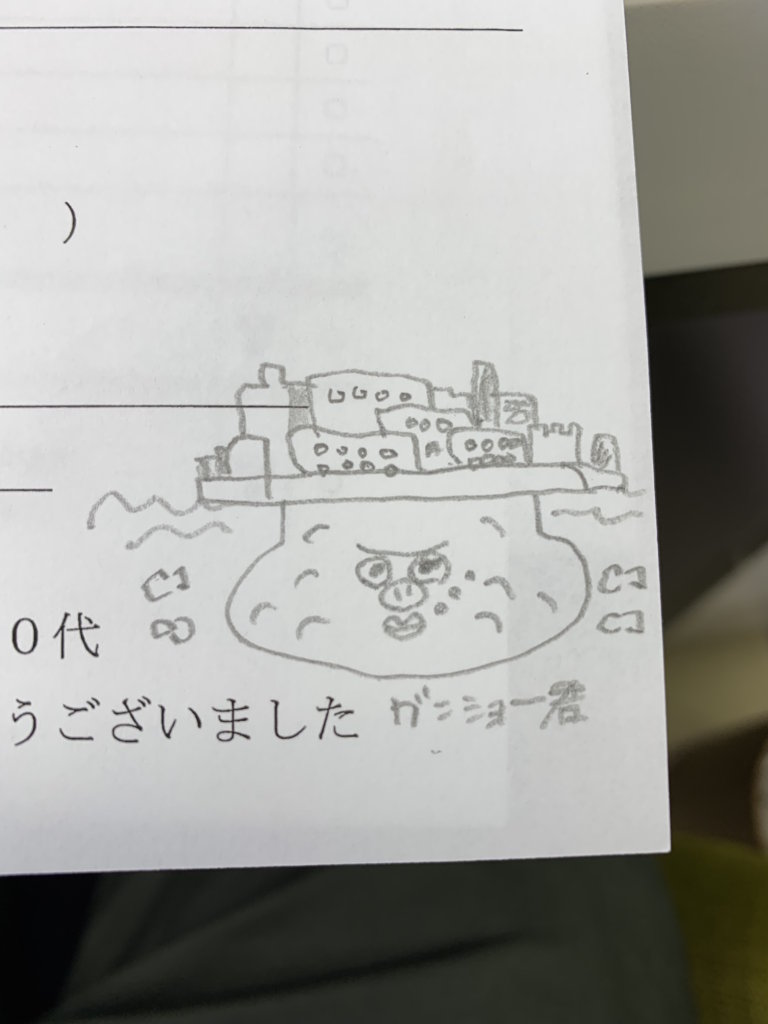 )
０代
うございました
ガンショー君